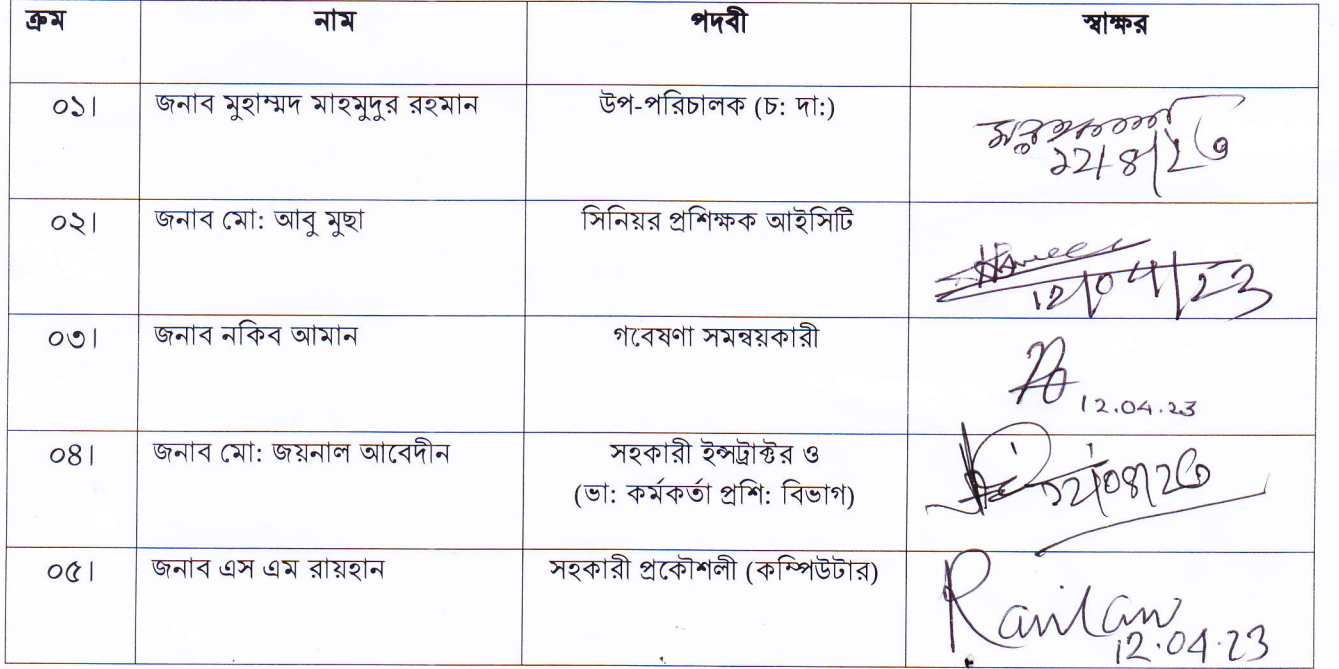 ক্রম নাম পদবী স্বাক্ষর
০১। জনাব মুহাম্মদ মাহমুদুর রহমান উপ-পরিচালক (চ: দা:)
১২/৪/২৩
০২। জনাব মো: আবু মুছা সিনিয়র প্রশিক্ষক আইসিটি
12/04/23
০৩। জনাব নকিব আমান গবেষণা সমন্বয়কারী
12.04.23
০৪। জনাব মো: জয়নাল আবেদীন সহকারী ইন্সট্রাক্টর ও
(ভা: কর্মকর্তা প্রশি: বিভাগ)
১২/০৪/২৩
০৫। জনাব এস এম রায়হান সহকারী প্রকৌশলী (কম্পিউটার)
12.04.23